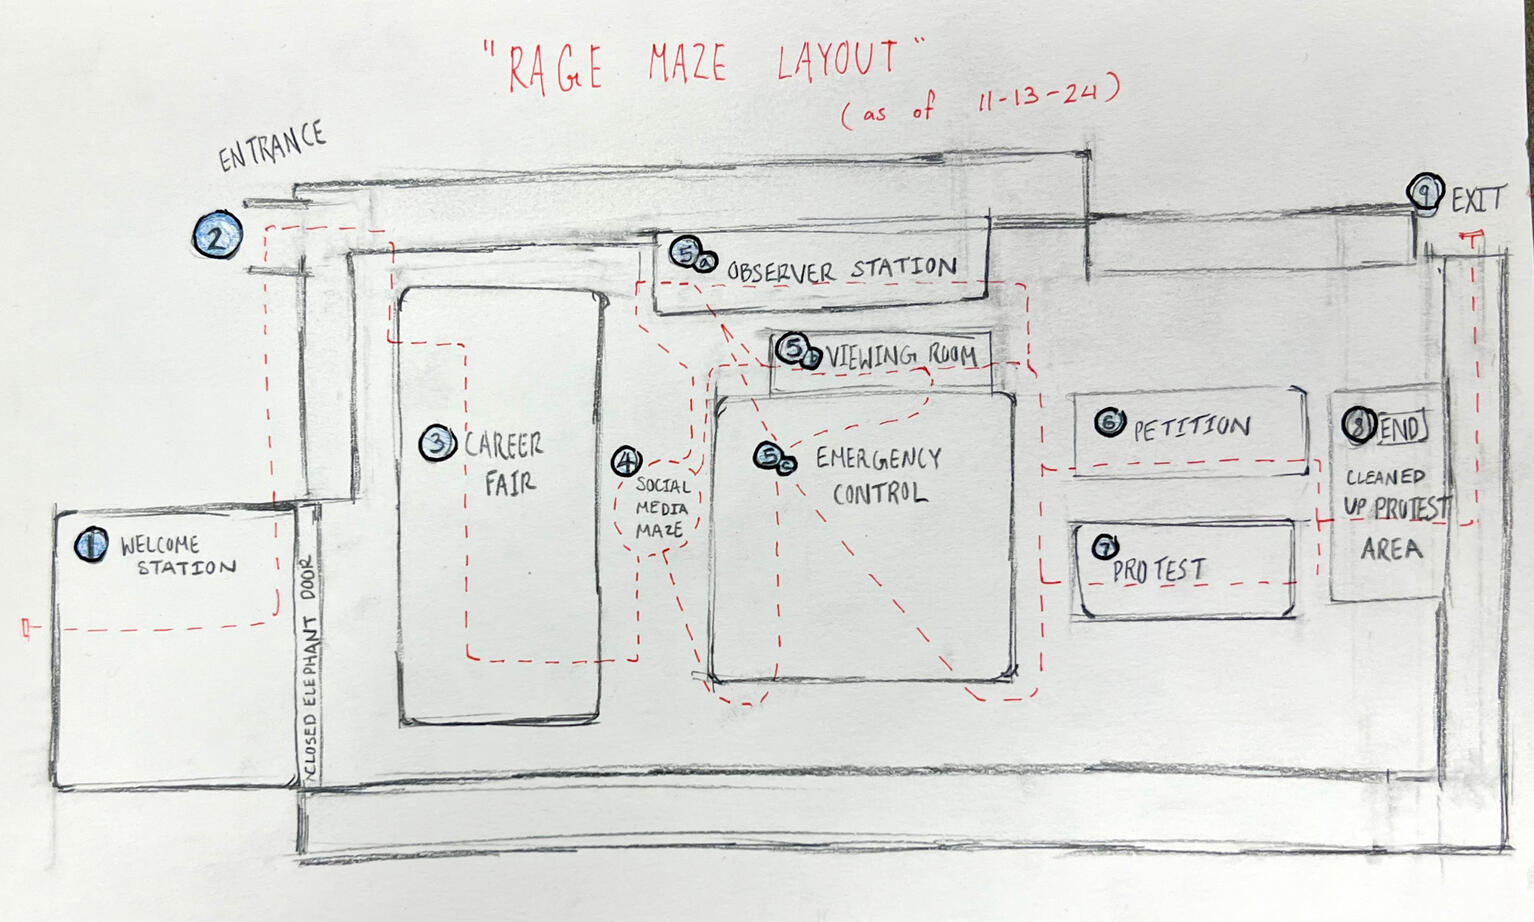 "RAGE MAZE LAYOUT"
(as of 11-13-24)
ENTRANCE
2
9 EXIT
5a OBSERVER STATION
5b VIEWING ROOM
3 CAREER
FAIR
4
SOCIAL
MEDIA
MAZE
5c EMERGENCY
CONTROL
6 PETITION
7
PROTEST
8 END
CLEANED
UP PROTEST
AREA
1 WELCOME
STATION
CLOSED ELEPHANT DOOR